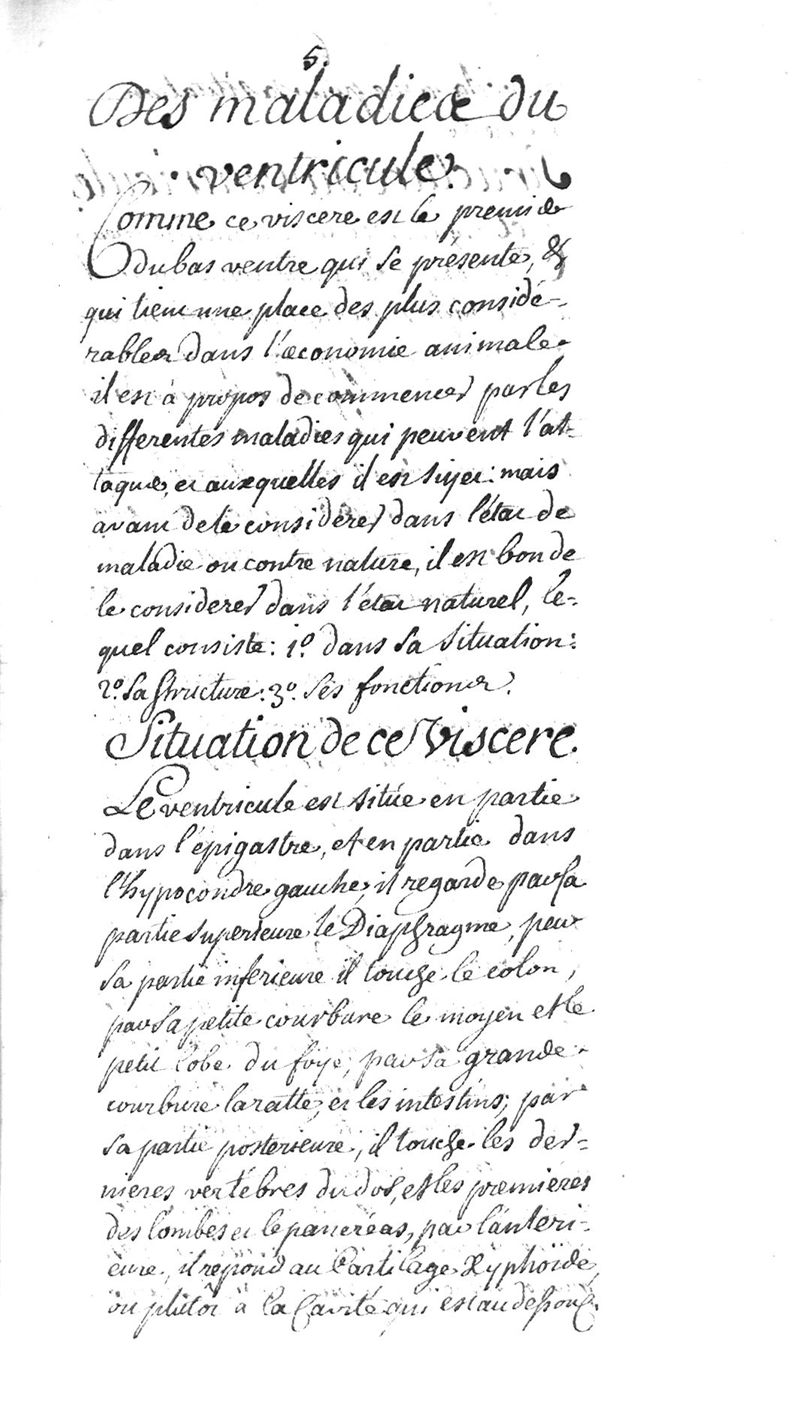 5.
Des maladies du
ventricule.
Comme ce viscere est le premier
du bas ventre qui se présente, &
qui tient une place des plus considé-
rables dans l'œconomie animale
il est à propos de commencer par les
differentes maladies qui peuvent l'at-
taquer, et auxquelles il est sujet: mais
avant de le considerer dans l'état de
maladie ou contre nature, il est bon de
le considerer dans l'état naturel, le-
quel consiste: 1º. dans sa situation:
2º. sa structure: 3º. ses fonctions.
Situation de ce Viscere.
Le ventricule est située en partie
dans l'épigastre, et en partie dans
l'hypocondre gauche, il regarde par sa
partie superieure le Diaphragme, par
sa partie inferieure il touche le colon,
par sa petite courbure le moyen et le
petit lobe du foye, par sa grande
courbure la ratte, et les intestins; par
sa partie posterieure, il touche les der-
nieres vertébres du dos, et les premieres
des lombes et le pancréas, par l'anteri-
eure, il répond au Cartilage Xyphoïde,
ou plutôt à la Cavité qui est au dessous.